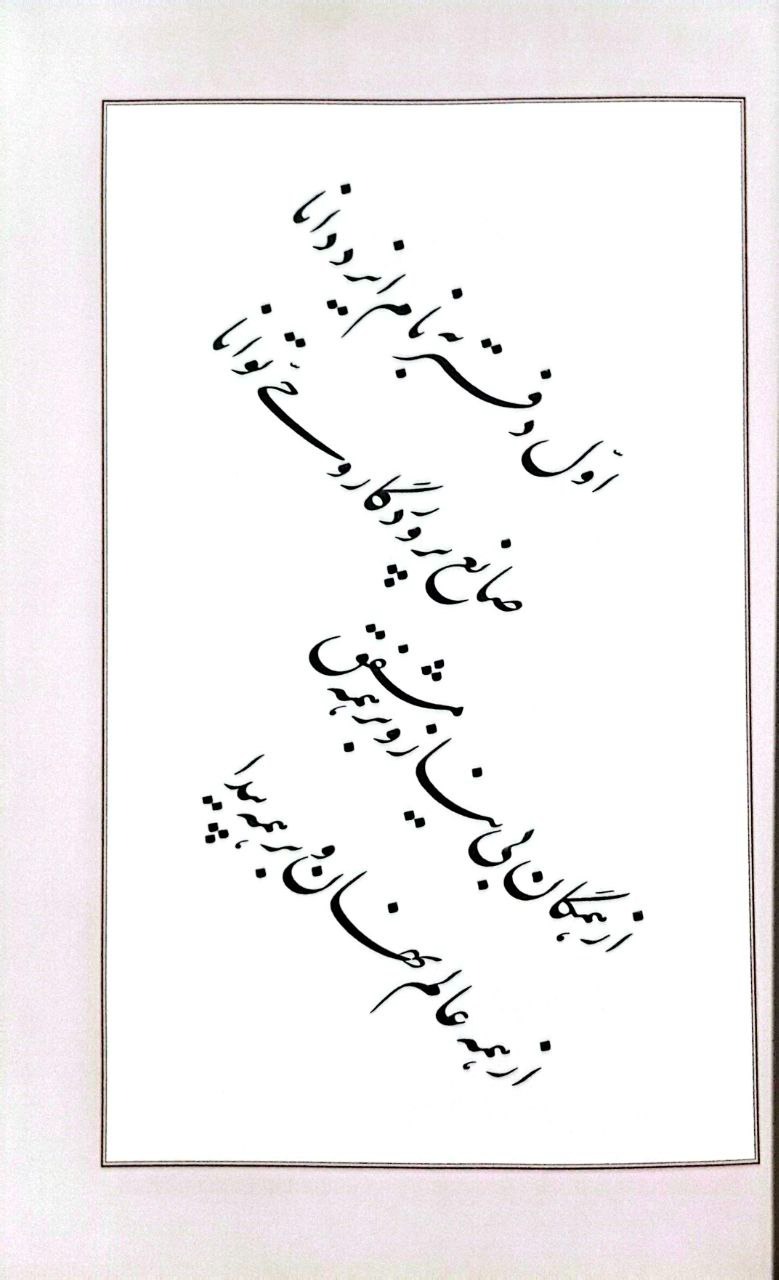 اوّل دفتر به نام ایزد دانا
صانع پروردگار و حیّ توانا
از همگان بی نیاز و بر همه مشفق
از همه عالم نهان و بر همه پیدا